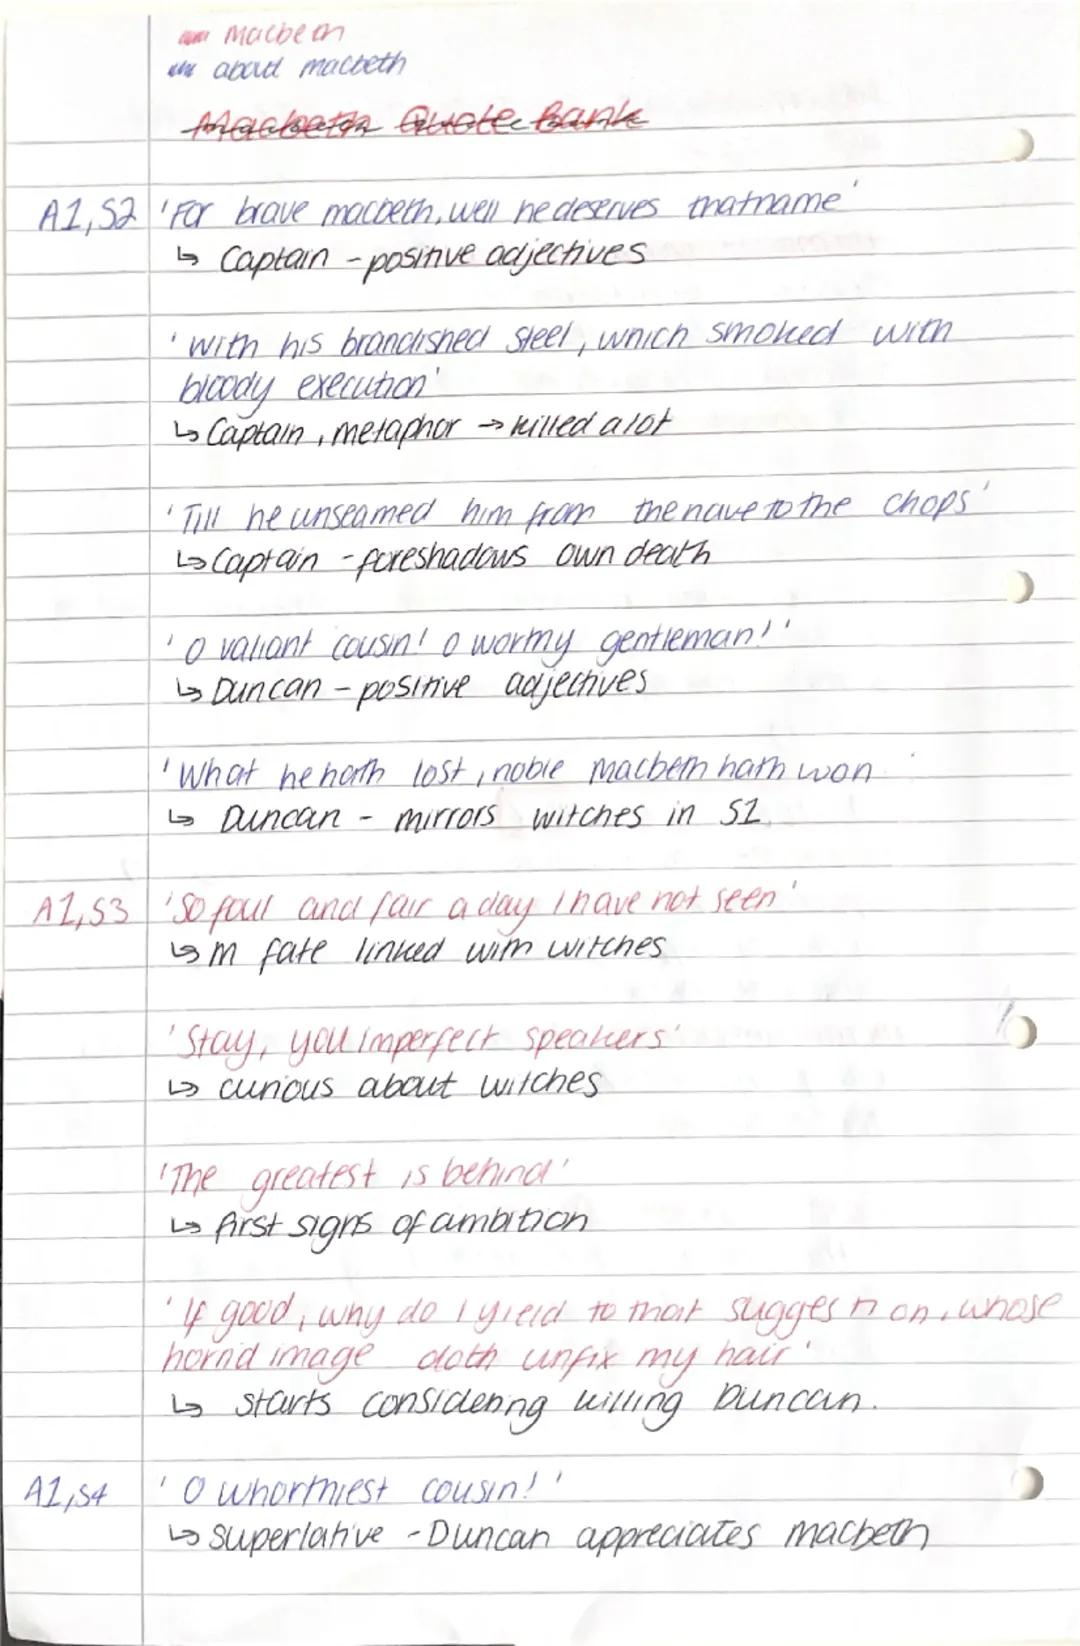 macbeth
about macbeth
Macbeth Quote Bank
A1,S2 'For brave macbeth, well he deserves that name'
↳ Captain - positive adjectives
'With his brandished steel, which smoked with
bloody execution'
↳ Captain, metaphor → killed a lot
'Till he unseamed him from the nave to the chops'
↳ Captain - foreshadows own death
'O valiant cousin! O worthy gentleman!'
↳ Duncan - positive adjectives
'What he hath lost, noble macbeth hath won
↳ Duncan - mirrors witches in S1.
A1,S3 'So foul and fair a day I have not seen'
↳ M fate linked with witches
'Stay, you imperfect speakers'
↳ curious about witches
'The greatest is behind'
↳ first signs of ambition
'If good, why do I yield to that suggestion, whose
horrid image doth unfix my hair'
↳ starts considering killing Duncan.
A1,S4 'O whorthiest cousin!'
↳ superlative - Duncan appreciates macbeth